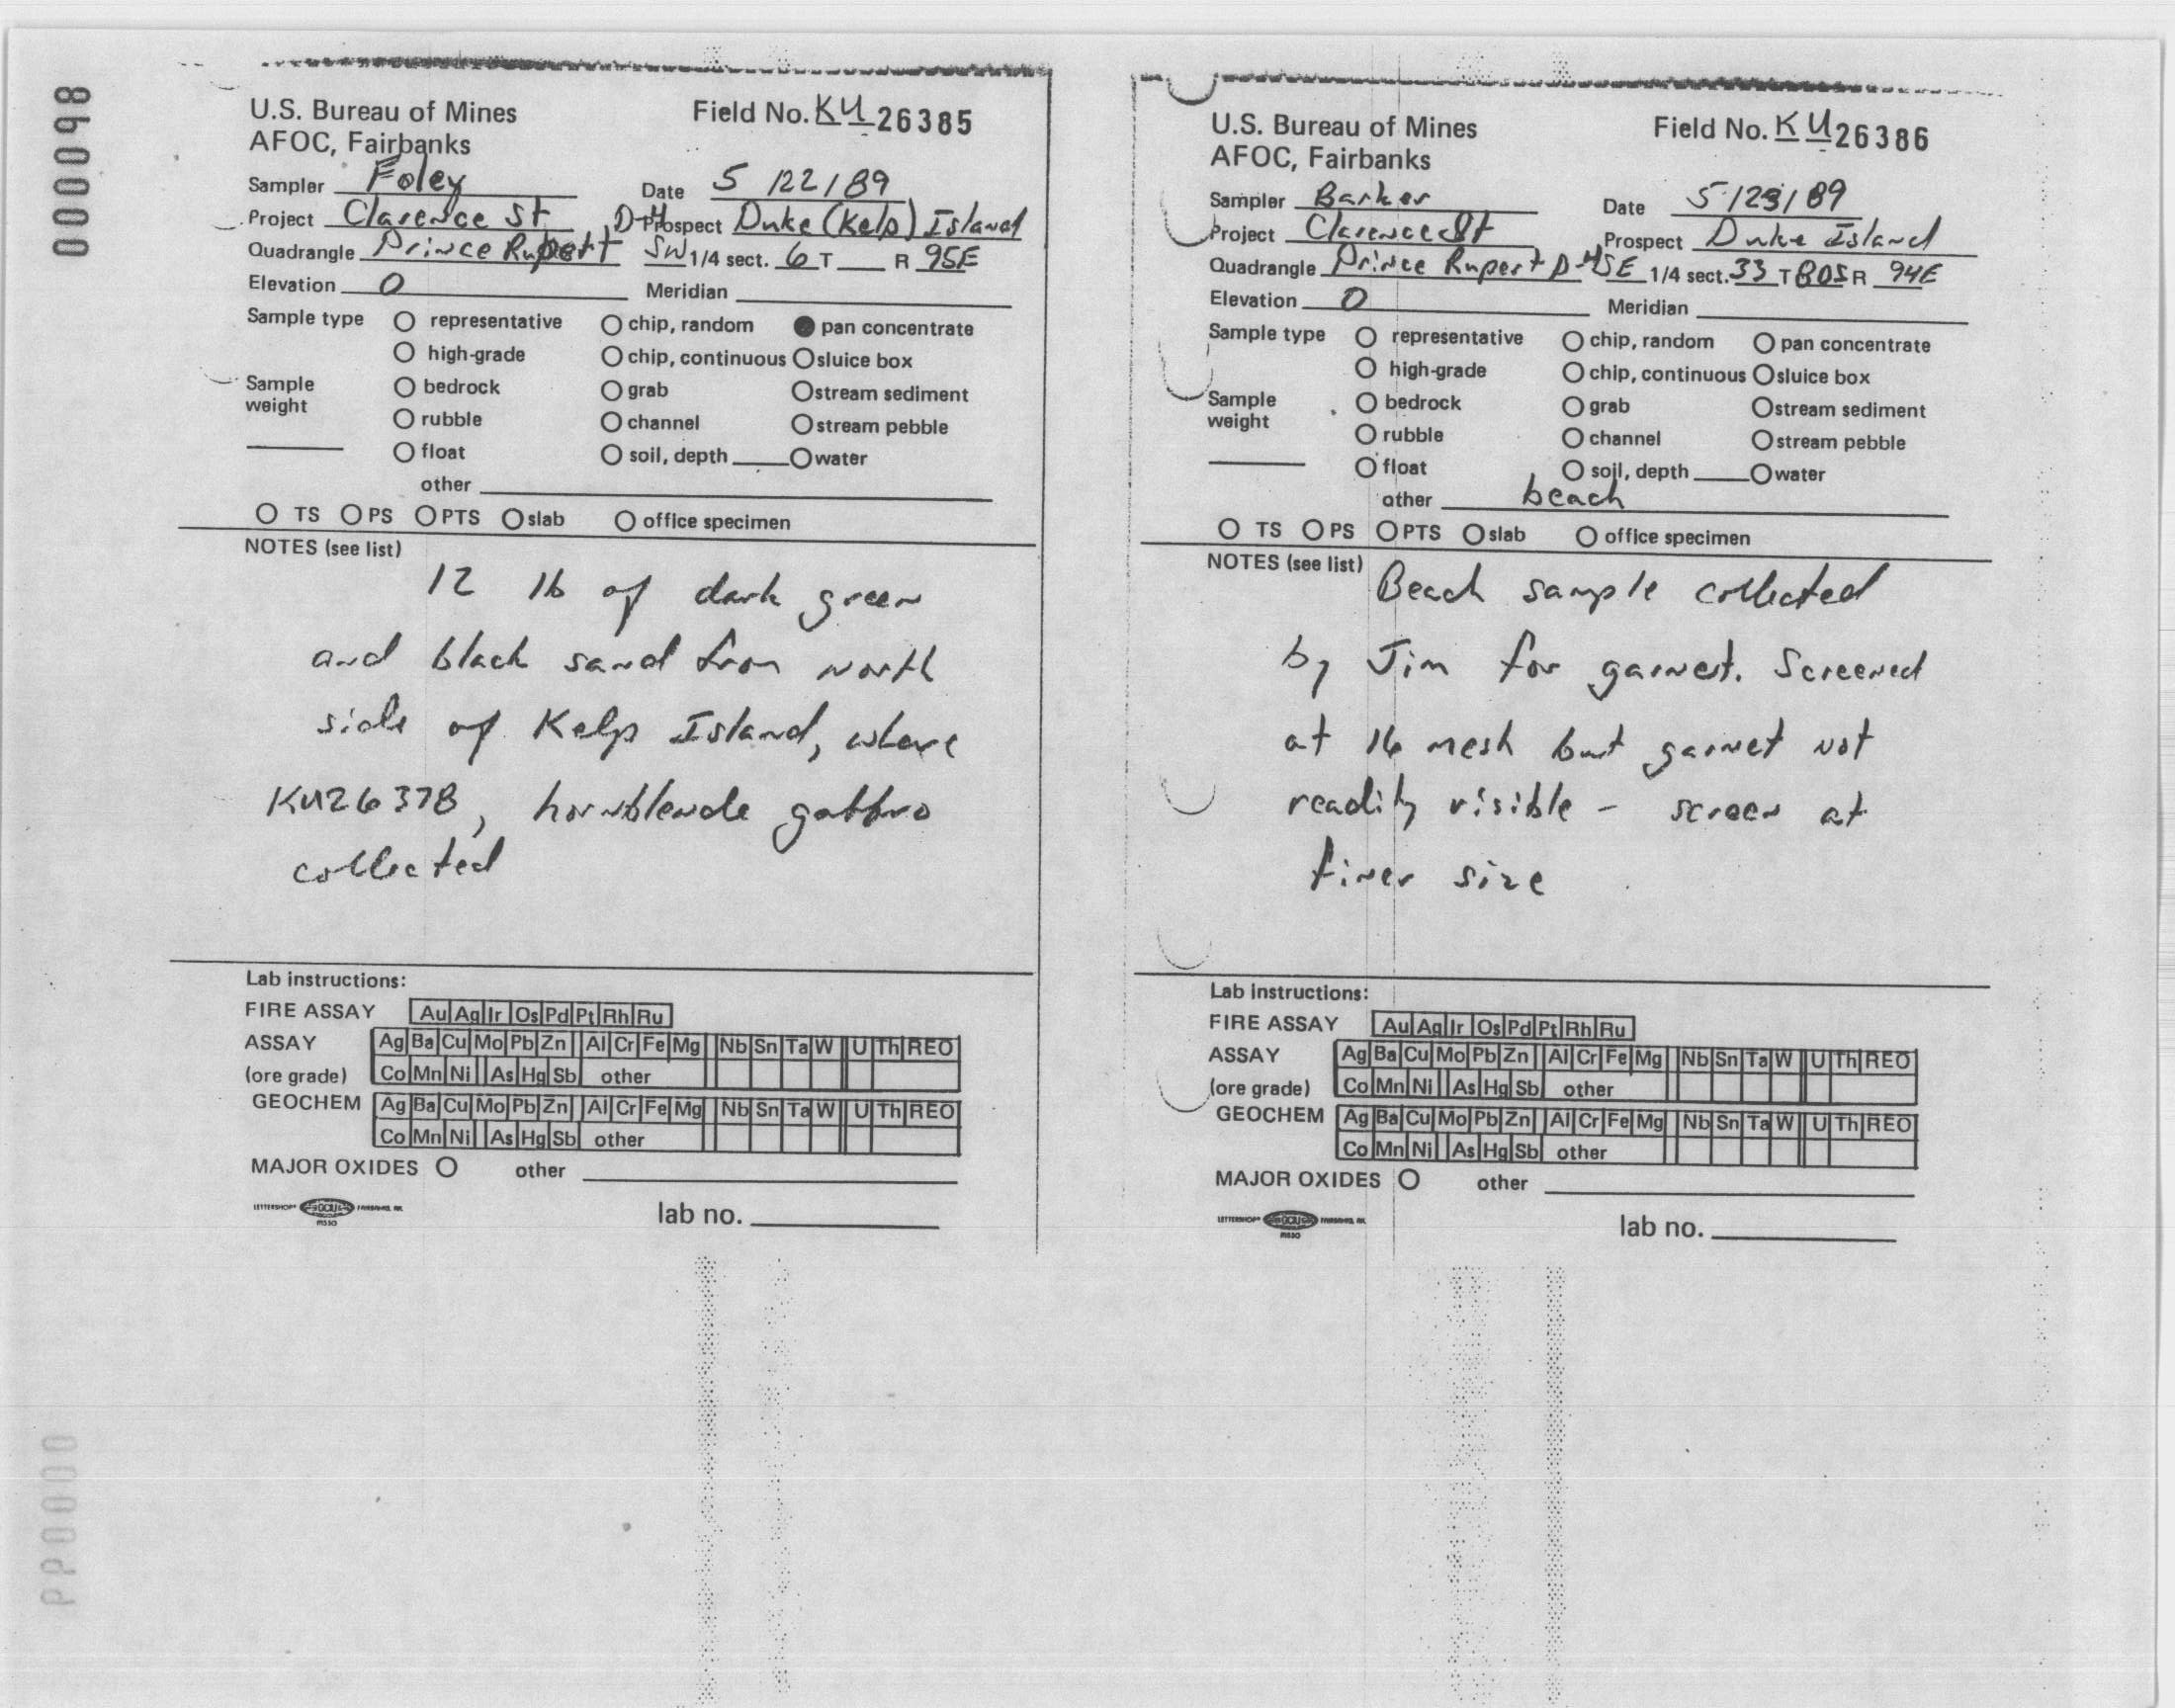 000098
U.S. Bureau of Mines
AFOC, Fairbanks
Field No. KU 26385
Sampler Foley
Date 5/22/89
Project Clarence St
Prospect Duke (Kelp) Island
Quadrangle Prince Rupert D-4
SW 1/4 sect. 6 T ___ R 95E
Elevation 0
Meridian
Sample type
O representative O chip, random ● pan concentrate
O high-grade O chip, continuous O sluice box
Sample weight
O bedrock O grab O stream sediment
O rubble O channel O stream pebble
O float O soil, depth ___ O water
other
O TS O PS O PTS O slab O office specimen
NOTES (see list)
12 lb of dark green
and black sand from north
side of Kelp Island, where
KU26378, hornblende gabbro
collected
Lab instructions:
FIRE ASSAY Au Ag Ir Os Pd Pt Rh Ru
ASSAY Ag Ba Cu Mo Pb Zn Al Cr Fe Mg Nb Sn Ta W U Th REO
(ore grade) Co Mn Ni As Hg Sb other
GEOCHEM Ag Ba Cu Mo Pb Zn Al Cr Fe Mg Nb Sn Ta W U Th REO
Co Mn Ni As Hg Sb other
MAJOR OXIDES O other
LETTERSHOP
lab no.
U.S. Bureau of Mines
AFOC, Fairbanks
Field No. KU 26386
Sampler Barker
Date 5/23/89
Project Clarence St
Prospect Duke Island
Quadrangle Prince Rupert D-4
SE 1/4 sect. 33 T 80S R 94E
Elevation 0
Meridian
Sample type
O representative O chip, random O pan concentrate
O high-grade O chip, continuous O sluice box
Sample weight
O bedrock O grab O stream sediment
O rubble O channel O stream pebble
O float O soil, depth ___ O water
other beach
O TS O PS O PTS O slab O office specimen
NOTES (see list)
Beach sample collected
by Jim for garnet. Screened
at 16 mesh but garnet not
readily visible - screen at
finer size
Lab instructions:
FIRE ASSAY Au Ag Ir Os Pd Pt Rh Ru
ASSAY Ag Ba Cu Mo Pb Zn Al Cr Fe Mg Nb Sn Ta W U Th REO
(ore grade) Co Mn Ni As Hg Sb other
GEOCHEM Ag Ba Cu Mo Pb Zn Al Cr Fe Mg Nb Sn Ta W U Th REO
Co Mn Ni As Hg Sb other
MAJOR OXIDES O other
LETTERSHOP
lab no.